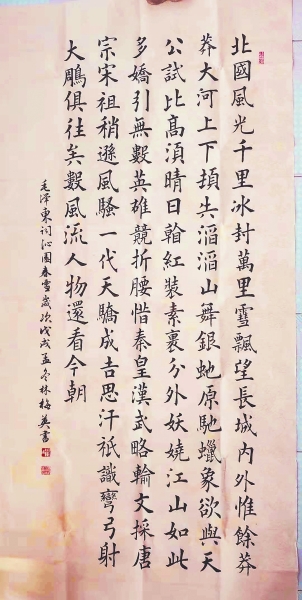 北國風光千里冰封萬里雪飄望長城內外惟餘莽
莽大河上下頓失滔滔山舞銀蛇原馳蠟象欲與天
公試比高須晴日看紅裝素裹分外妖嬈江山如此
多嬌引無數英雄競折腰惜秦皇漢武略輸文採唐
宗宋祖稍遜風騷一代天驕成吉思汗祇識彎弓射
大鵰俱往矣數風流人物還看今朝
毛澤東詞沁園春雪歲次戊戌孟冬林梅英書